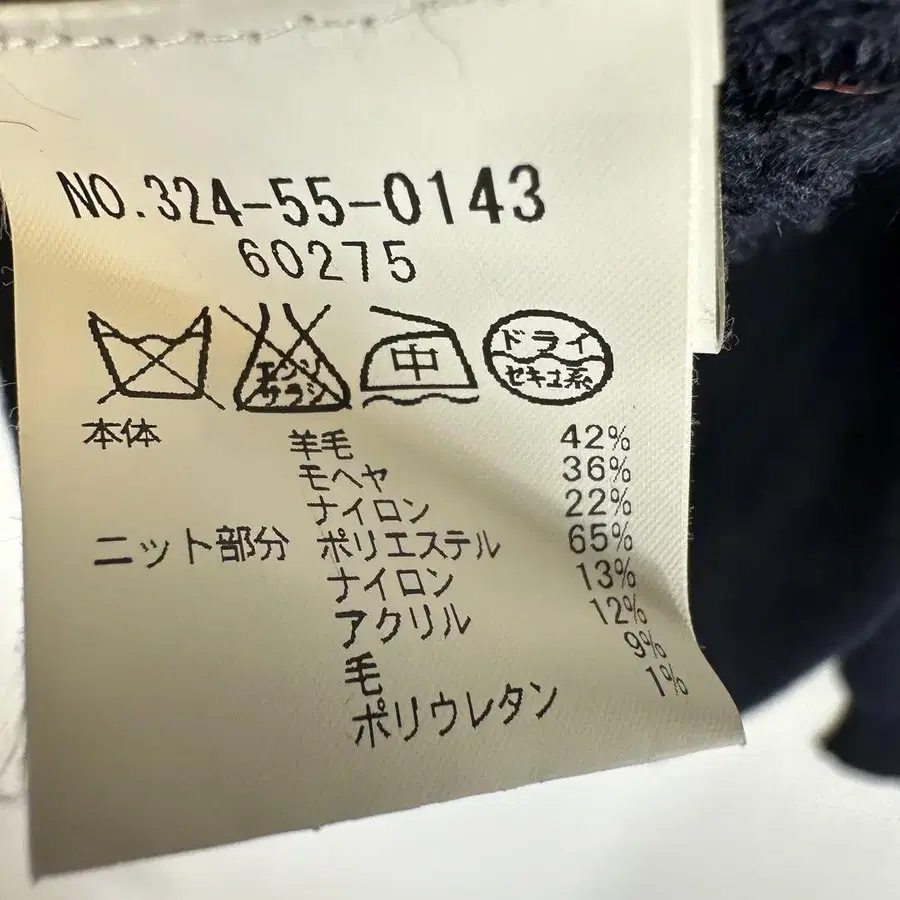 NO.324-55-0143
60275
エンソ サラシ 中 ドライ セキユ系
本体 羊毛 42%
モヘヤ 36%
ナイロン 22%
ニット部分 ポリエステル 65%
ナイロン 13%
アクリル 12%
毛 9%
ポリウレタン 1%